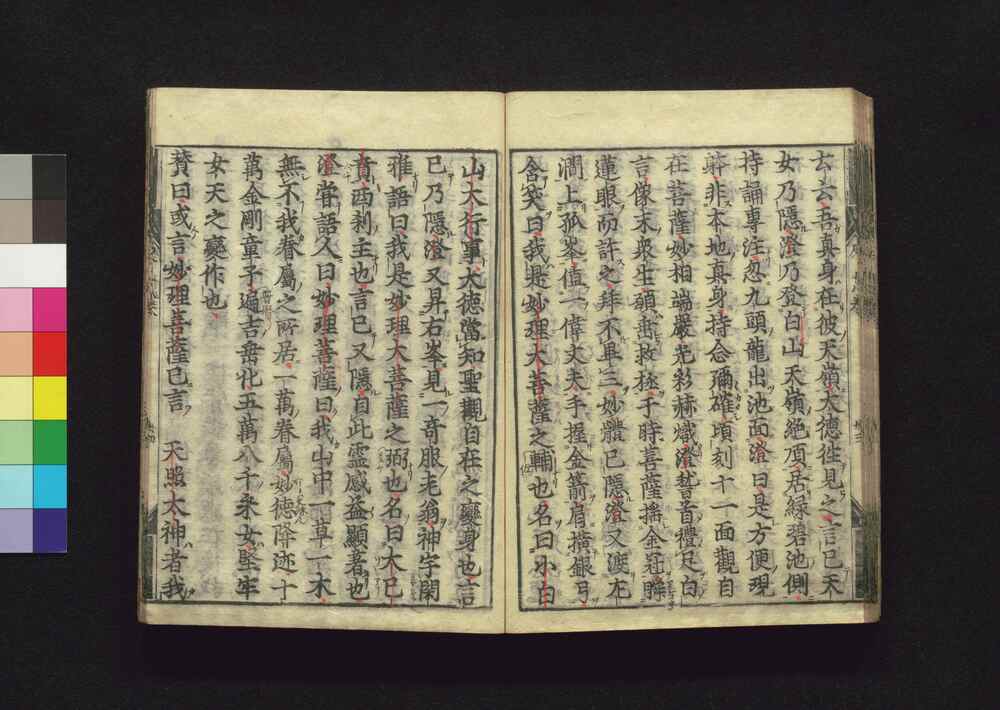 女云吾真身在彼天嶺大德往見之言已天
女乃隱澄乃登白山天嶺絕頂居緑碧池側
持誦專注忽九頭龍出池面澄曰是方便現
躰非本地真身持念彌確頃刻十一面觀自
在菩薩妙相端嚴光彩赫熾澄誓首禮足白
言像末衆生願垂救拯于時菩薩揺金冠瞬
蓮眼而許之拜不畢三妙體已隱澄又渡左
澗上孤峯値一偉丈夫手握金箭肩横銀弓
含笑曰我是妙理大菩薩之輔也名曰小白
山大行事大德當知聖觀自在之變身也言
已乃隱澄又昇右峯見一奇服老翁神宇閑
雅語曰我是妙理大菩薩之弼也名曰大已
貴西刹主也言已又隱自此靈感益顯著也
澄甞語人曰妙理菩薩曰我山中一草一木
無不我眷屬之所居一萬眷屬妙德降迹十
萬金剛童子遍吉垂化五萬八千采女堅牢
女天之變作也
賛曰或言妙理菩薩已言 天照太神者我